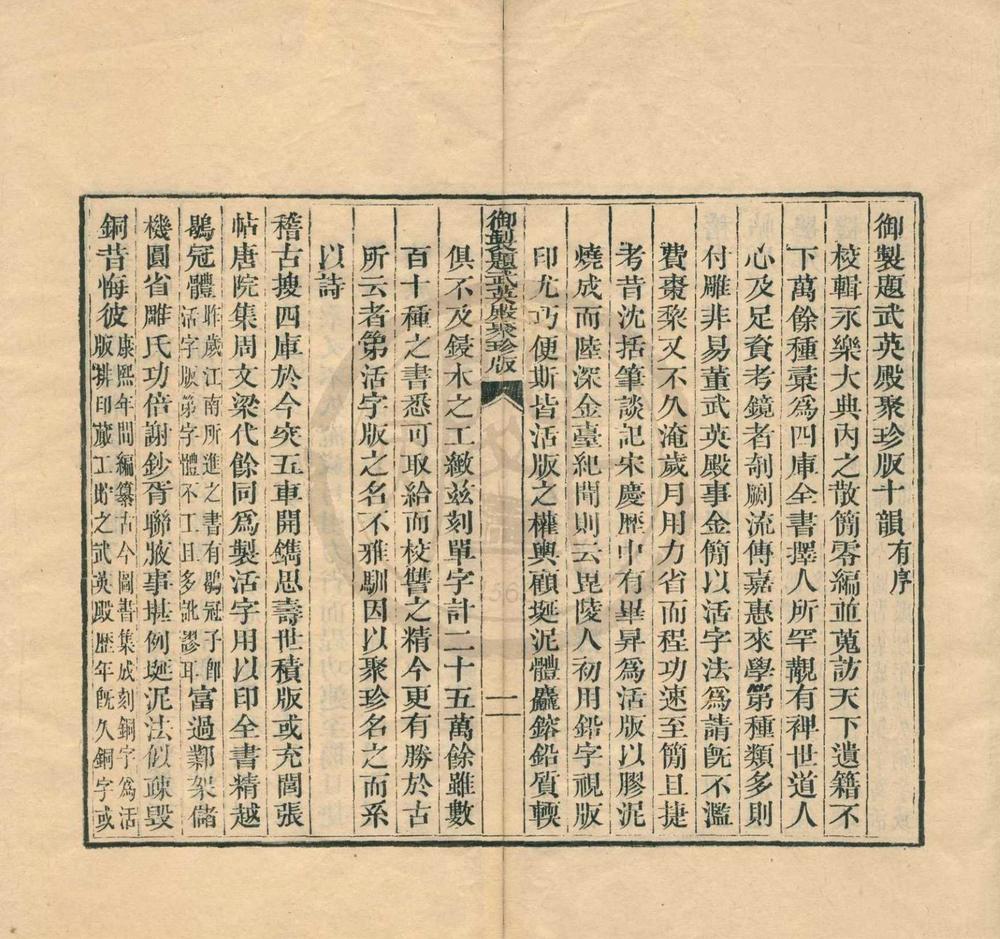 御製題武英殿聚珍版十韻有序
校輯永樂大典內之散簡零編並蒐訪天下遺籍不
下萬餘種彙爲四庫全書擇人所罕覯有裨世道人
心及足資考鏡者剞劂流傳嘉惠來學第種類多則
付雕非易董武英殿事金簡以活字法爲請旣不濫
費棗棃又不久淹歲月用力省而程功速至簡且捷
考昔沈括筆談記宋慶歷中有畢昇爲活版以膠泥
燒成而陸深金臺紀聞則云毘陵人初用鉛字視版
印尤巧便斯皆活版之權輿顧埏泥體麤鎔鉛質輭
御製題武英殿聚珍版
一
俱不及鋟木之工緻兹刻單字計二十五萬餘雖數
百十種之書悉可取給而校讐之精今更有勝於古
所云者第活字版之名不雅馴因以聚珍名之而系
以詩
稽古搜四庫於今突五車開鐫思壽世積版或充閭張
帖唐院集周文梁代餘同爲製活字用以印全書精越
鶡冠體昨歲江南所進之書有鶡冠子卽活字版第字體不工且多訛謬耳富過鄴架儲
機圓省雕氏功倍謝鈔胥聯腋事堪例埏泥法似疎毀
銅昔悔彼康熙年間編纂古今圖書集成刻銅字爲活版排印蕆工貯之武英殿歷年旣久銅字或